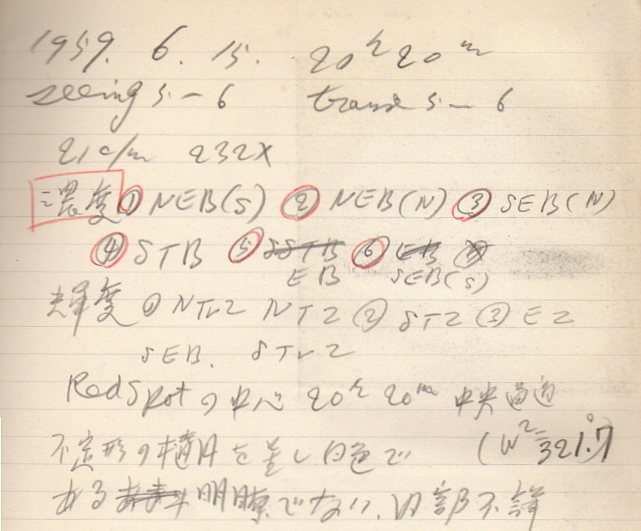 1959. 6. 15. 20h20m
seeing 5-6 trans 5-6
21c/m 232X
濃度 ① NEB(S) ② NEB(N) ③ SEB(N)
④ STB ⑤ SSTB ⑥ EB
EB SEB(S)
輝度 ① NTrZ NTZ ② STZ ③ EZ
SEB. STrZ
Red Spotの中心 20h20m 中央通過
不定形の楕円を呈し白色で (W2=321.°7)
ある 明瞭でない、内部不詳